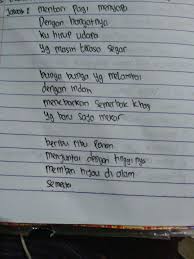 Jawab : mentari pagi menyapa
Dengan hangatnya
ku hirup udara
yg masih terasa segar
bunga bunga yg melambai
dengan indah
menebarkan semerbak khas
yg baru saja mekar
beribu ribu Pohon
menjuntai dengan tinggi nya
memberi hijau di alam
semesta